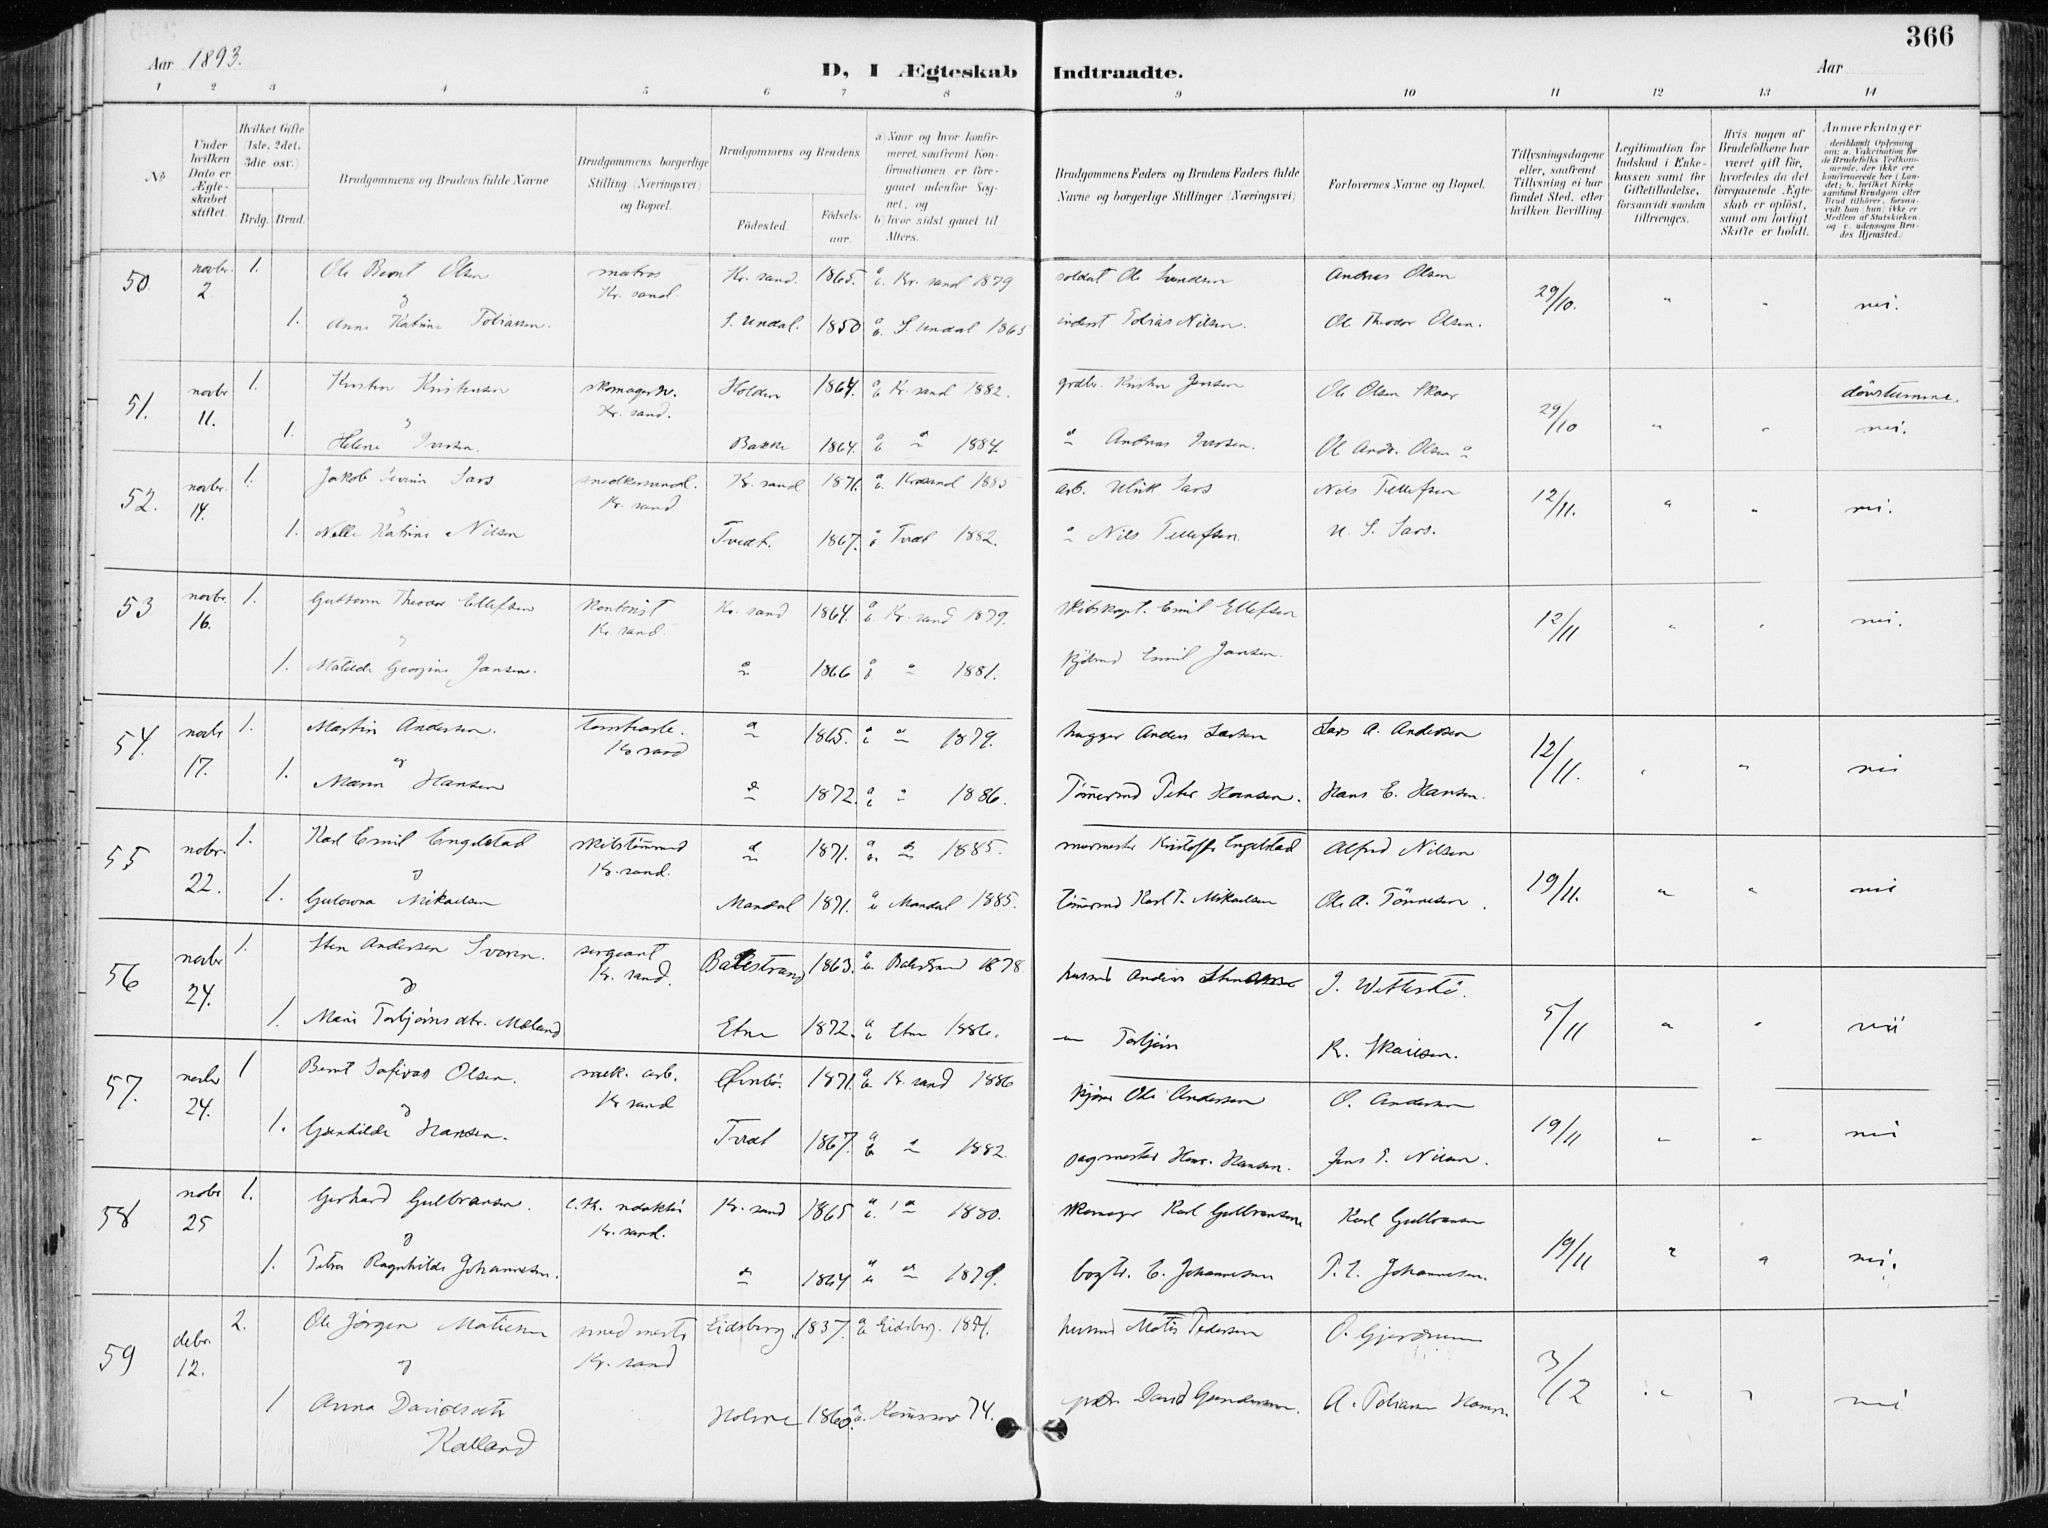 366
Aar 1893.
D, I Ægteskab Indtraadte.
Aar
1 2 3 4 5 6 7 8 9 10 11 12 13 14
No
Under hvilken Dato er Ægteskabet stiftet.
Hvilket Gifte (1ste, 2det, 3die osv.)
Brdg. Brud.
Brudgommens og Brudens fulde Navne
Brudgommens borgerlige Stilling (Næringsvei) og Bopæl.
Brudgommens og Brudens
Födested.
Födselsaar.
a) Naar og hvor konfirmeret, saafremt Konfirmationen er foregaaet udenfor Sognet, og
b) hvor sidst gaaet til Alters.
Brudgommens Faders og Brudens Faders fulde Navne og borgerlige Stillinger (Næringsvei)
Forlovernes Navne og Bopæl.
Tillysningsdagene eller, saafremt Tillysning ei har fundet Sted, efter hvilken Bevilling.
Legitimation for Indskud i Enkekassen samt for Giftetilladelse, forsaavidt saadan tiltrænges.
Hvis nogen af Brudefolkene har været gift för, hvorledes da det foregaaende Ægteskab er oplöst, samt om lovligt Skifte er holdt.
Anmærkninger
deriblandt Oplysning om: a. Vaksination for de Brudefolks Vedkommende, der ikke ere konfirmerede her i Landet; b. hvilket Kirkesamfund Brudgom eller Brud tilhörer, forsaavidt han (hun) ikke er Medlem af Statskirken, og c. udensogns Brudes Hjemsted.
50 novbr. 2. 1. Ole Bernt Olsen matros Kr. sand. Kr. sand. 1865. a b. Kr. sand 1879 soldat Ole Svendsen Andreas Olsen 29/10. " " nei.
og
1. Anne Katrine Tobiassen. S. Undal. 1850 a b. S. Undal 1865 inderst Tobias Nilsen. Ole Theodor Olsen.
51. novbr 11. 1. Kristen Kristensen skomagersv. Kr. sand. Holden 1864. a b Kr. sand 1882. grdbr. Kristen Jensen Ole Olsen Skaar 29/10 " " døvstumme. nei.
og
1. Helene Iversen. Bakke 1864. a b " 1884. " Andreas Iversen. Ole Andr. Olsen "
52. novbr. 14. 1. Jakob Severin Sars snedkersvend. Kr. sand Kr. sand 1871. a b. Krsand 1885 arb. Ulrik Sars Nils Tellefsen 12/11. " " nei.
og
1. Nelle Katrine Nilsen Tvedt. 1867. a b Tvedt 1882. " Nils Tellefsen. U. S. Sars.
53 novbr. 16. 1. Gustav Theodor Ellefsen Kontorist Kr. sand. Kr. sand 1864. a b Kr. sand 1879. skibskapt. Emil Ellefsen 12/11 " " nei.
og
1. Matilde Georgine Jansen. " 1866 a b " 1881. kjøbmd Emil Jansen.
54. novbr 17. 1. Martin Andersen. Kr sand " 1865. a b " 1879. hugger Anders Larsen Lars A. Andersen 12/11. " " nei
og
1. Maren Hansen " 1872. a b " 1886. Tömermd Peter Hansen. Hans E. Hansen.
55 nobr. 22. 1. Karl Emil Engelstad skibstömmrmd Kr. sand. " 1871. a b. " 1885. murmester Kristoffer Engelstad Alfred Nilsen 19/11. " " nei
og
1. Gulowna Mikaelsen Mandal 1871. a b Mandal 1885. Tömermd Karl T. Mikaelsen Ole A. Tönnesen.
56 novbr 24. 1. Sten Andersen Svoren. sergeant Kr. sand. Balestrand 1863. a b. Balestrand 1878. husmd Anders Stensen J. Wettestö. 5/11 " " nei
og
1. Marie Torbjörnsdtr. Meland Etne 1872. a b Etne 1886. " Torbjörn K. Skailsen.
57. novbr 24. 1 Bernt Sofirus Olsen. mek. arb. Kr sand Övrebö. 1871. a b. Kr. sand 1886 kjörer Ole Andersen O. Andersen 19/11 " " nei
og
1. Gunhilde Hansen. Tvedt 1867. a b " 1882. sagmester Hans Hansen. Jens E. Nilsen.
58 nobr 25 1. Gerhard Gulbransen. Kr. sand. Kr. sand 1865 a b. " 1880. skomager Karl Gulbransen Karl Gulbransen 19/11 " " nei.
og
1. Petra Ragnhilde Johannesen. " 1864 a b " 1879. bogtr. E. Johannesen P. E. Johannesen.
59 debr. 12. 2. Ole Jörgen Matiesen smedmester Kr. sand Eidsberg. 1837. a b Eidsberg. husmd Mates Pedersen O. Gjerdrum 3/12 " " nei
og
1 Anna Davidsdtr Kalland Holme 1860. a b. 74. grdbr. David Gundersen. A. Tobiassen